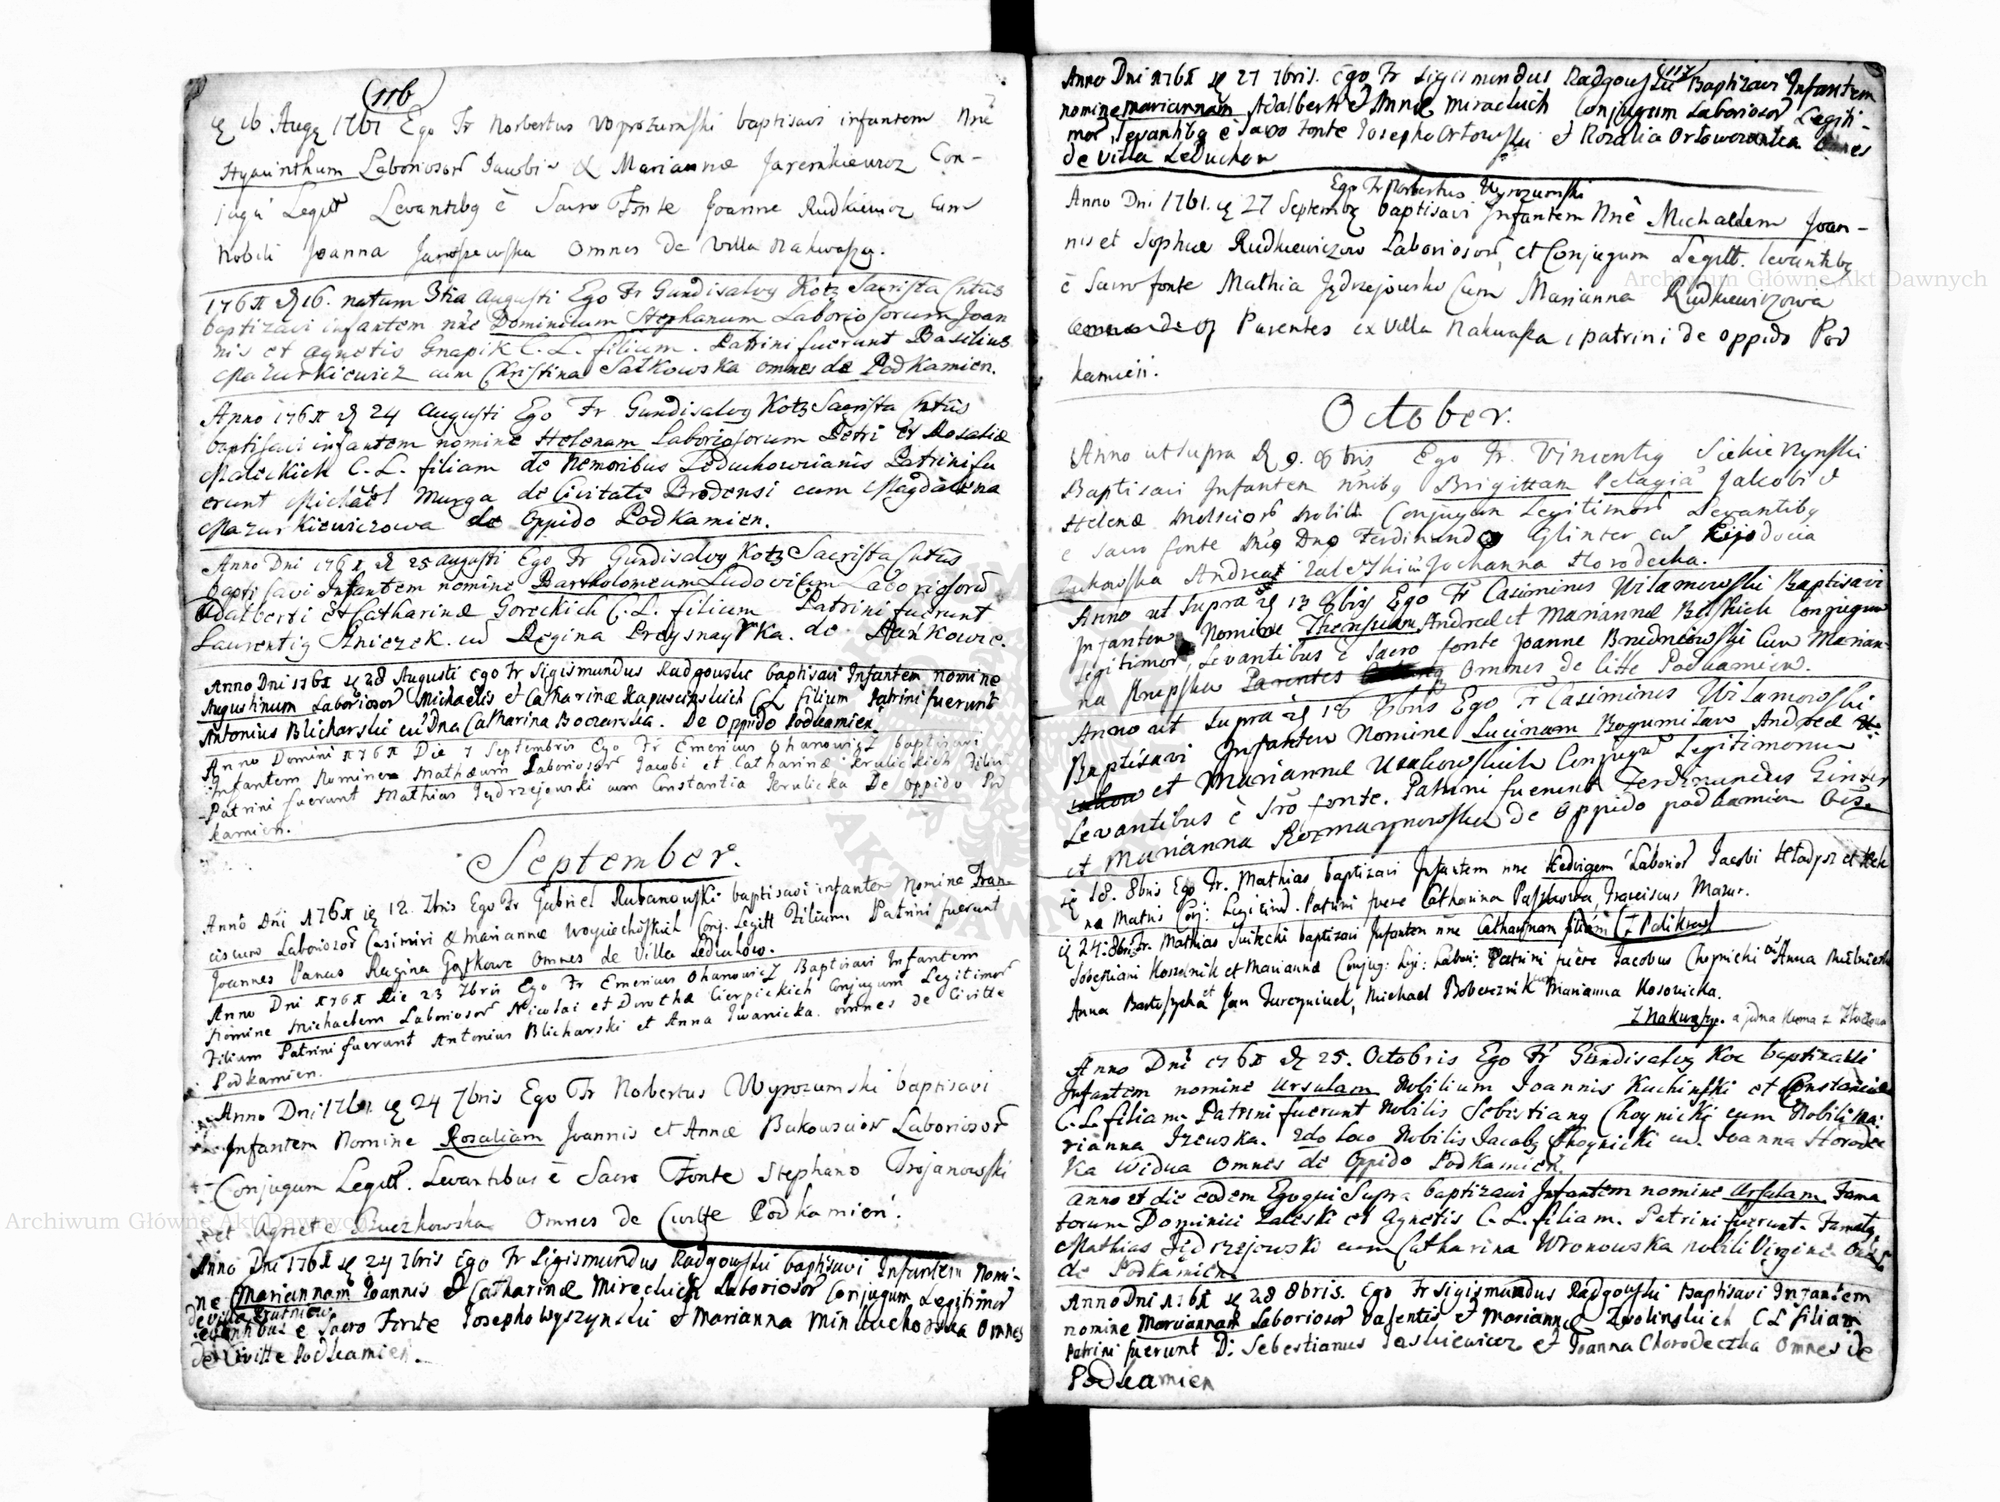 116
16 Augg 1761 Ego Fr Norbertus baptisavi infantem Nne
Hyacinthum Laboriosor Iacobi & Mariannæ Jaremkiewicz Con-
jugu Legitt Levantibg è Sacro Fonte Joanne Rudkiewicz Cum
Nobili Joanna Omnes de Villa Nakwasza.
1761 d 16. natum 3tia Augusti Ego Fr Gundisalvg Kotz Sacrista
baptizavi infantem nne Dominicum Stephanum Laboriosorum Joan
nis et Agnetis Gnapik C. L. filium. Patrini fuerunt Basilius
Mazurkiewicz cum Christina Satkowska omnes de Podkamien.
Anno 1761 d 24 Augusti Ego Fr Gundisalvg Kotz Sacrista
baptisavi infantem nomine Helenam Laboriosorum Petri et Rosaliæ
Malickich C. L. filiam de Nemoribus Leduchowianis Patrini fu
erunt Michael Murga de Civitate Brodensi cum Magdalena
Mazurkiewiczowa de Oppido Podkamien.
Anno Dni 1761 d 25 Augusti Ego Fr Gundisalvg Kotz Sacrista
baptisavi Infantem nomine Bartholomeum Ludovicum
Adalberti et Catharinæ Goreckich C. L. filium Patrini fuerunt
Laurentig cu Regina de
Anno Dni 1761 28 Augusti Ego Fr Sigismundus Radgouski baptisavi Infantem nomine
Augustinum Laboriosor Michaelis et Catharinæ Kapuscinskich C L filium Patrini fuerunt
Antonius Blicharski cu Dna Catharina De Oppido Podkamien
Anno Domini 1761 Die 7 Septembris Ego Fr Emericus Ohanowicz baptizavi
Infantem Nomine Mathæum Laboriosor Jacobi et Catharinæ Krulickich Filiu
Patrini fuerunt Mathias Jędrzejowski cum Constantia Krulicka De Oppido Pod
kamien.
September.
Anno Dni 1761 12. 7bris Ego Fr Gabriel Rubanowski baptisavi infantem Nomine Fran-
ciscum Laboriosor Casimiri & Mariannæ Woyciechoskich Conj. Legitt Filium Patrini fuerunt
Joannes Panas Regina Omnes de Villa Leduchow.
Anno Dni 1761 Die 23 7bris Ego Fr Emericus Ohanowicz Baptisavi Infantem
Nomine Michaelem Laboriosor Nicolai et Dorothæ Cierpickich Conjugum Legitimor
Filium Patrini fuerunt Antonius Blicharski et Anna Iwanicka. omnes de Civitte
Podkamien.
Anno Dni 1761. 24 7bris Ego Fr Norbertus Wyrozumski baptisavi
Infantem Nomine Rosaliam Joannis et Annæ Laboriosor
Conjugum Legitt. Levantibus è Sacro Fonte Stephano Trojanowski
et Agnete Omnes de Civitte Podkamien.
Anno Dni 1761 24 7bris Ego Fr Sigismundus Radgouski baptisavi Infantem Nomi-
ne Mariannam Ioannis et Catharinæ Mireckich Laboriosor Conjugum Legitimor
de villa
levantibus e Sacro Fonte Iosepho Wyszynski et Marianna Omnes
de Civitte Podkamien.
117
Anno Dni 1761 27 7bris. Ego Fr Sigismundus Radgouski Baptizavi Infantem
nomine Mariannam Adalberti et Annæ Conjugum Laboriosor Legiti-
mor levantibg è Sacro Fonte Iosepho Orłowski et Rozalia Omnes
de Villa Leduchow
Ego Fr Norbertus Wyrozumski
Anno Dni 1761. 27 Septembg baptisavi Infantem Nne Michaelem Joan-
nis et Sophiæ Rudkiewiczow Laboriosor, et Conjugum Legitt. levantibg
è Sacro fonte Mathia Jędrzejowski Cum Marianna Rudkiewiczowa
Parentes ex Villa Nakwasza, patrini de oppido Pod
kamień.
October.
Anno ut supra d 9. 8bris Ego Fr. Vincentig
Baptisavi Infantem nnibg Brigittam Pelagiã Jakobi &
Helenæ Nobili Conjugum Legitimor Levantibg
e Sacro fonte Dno Ferdinando Glinter cu
Andreas Zaleski cu Johanna Horodecka.
Anno ut supra d 13 8bris Ego Fr Casimirus Wilamowski Baptisavi
Infantem Nomine Theresiam Andreæ et Mariannæ Conjugum
Legitimor, Levantibus è Sacro fonte Joanne Cum Marian-
na Parentes Omnes de Citte Podkamien.
Anno ut supra d 18 8bris Ego Fr Casimirus Wilamowski
Baptisavi Infantem Nomine Lucinam Bogumilam Andreæ
et Mariannæ Conjugu Legitimorum
Levantibus è Sro fonte. Patrini fuerunt Ferdinandus
et Marianna Rozmarynowska de Oppido podkamien
18. 8bris Ego Fr. Mathias baptizavi Infantem nne Hedvigem Laborior Jacobi et
Conj: Legitim. Patrini fuere Catharina Franciscus Mazur.
24. 8bris Fr. Mathias baptizavi Infantem nne Catharinam filiam
Sobestiani et Mariannæ Conjug: Patrini fuere Jacobus Chojnicki cu Anna
Anna et Jan Michael cum Marianna Kosowicka.
Z Nakwaszy. a jedna kuma z
Anno Dni 1761 d 25. Octobris Ego Fr Gundisalvg Koc baptizavi
Infantem nomine Ursulam Nobilium Joannis Kuchinski et Constanciæ
C. L. filiam Patrini fuerunt Nobilis Sebestiang Choynicki cum Nobili Ma-
rianna 2do loco Nobilis Jacobg Choynicki cu. Joanna Horodec
ka Widua Omnes de Oppido Podkamien.
Anno et die eodem Ego qui supra baptizavi Infantem nomine Ursulam Fama
torum Dominici Zaleski et Agnetis C. L. filiam. Patrini fuerunt. Famatg
Mathias Jędrzejowski cum Catharina Wronowska nobili Virgine
de Podkamien
Anno Dni 1761 28 8bris. Ego Fr Sigismundus Radgouski Baptisavi Infantem
nomine Mariannam Laboriosor Valentis et Mariannæ Zwolinskich C L filiam
Patrini fuerunt D: Sebestianus Jaskiewicz et Joanna Chorodeczka Omnes de
Podkamien
Archiwum Główne Akt Dawnych
Archiwum Główne Akt Dawnych